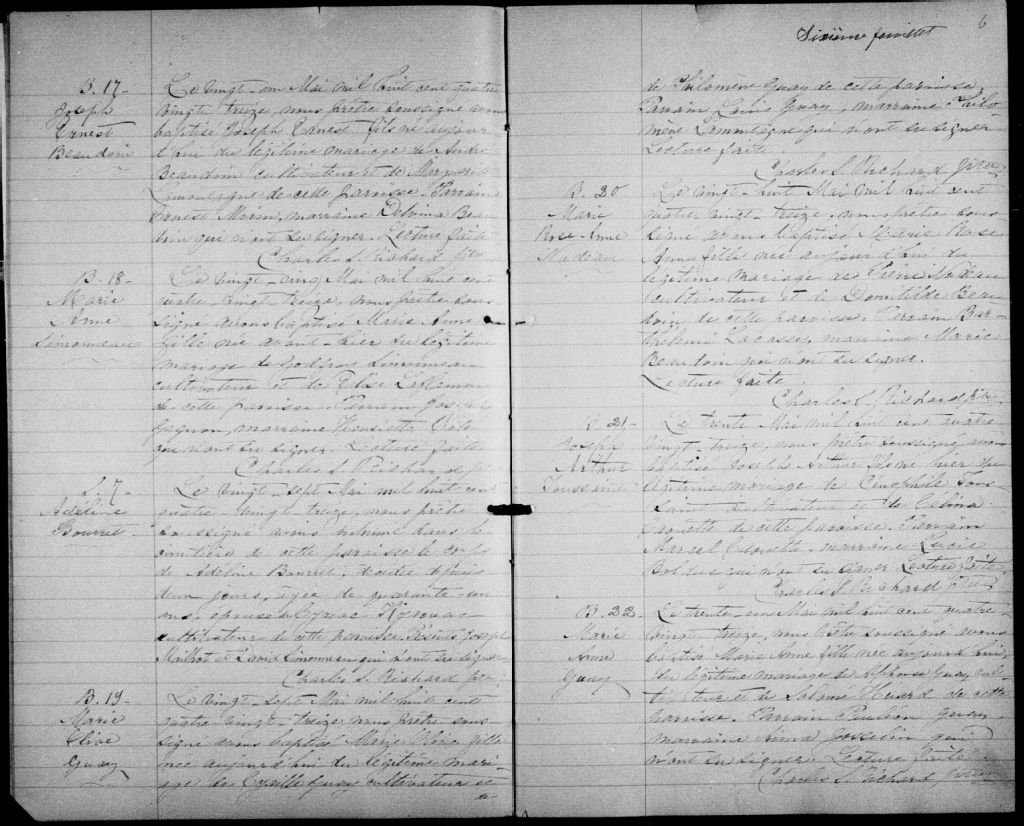 B. 17-
Joseph
Ernest
Beaudoin
Le vingt-un Mai mil huit cent quatre
vingt treize, nous prêtre soussigné avons
baptisé Joseph Ernest fils né aujour
d'hui du légitime mariage de André
Beaudoin cultivateur et de Marguerite
Lamontagne de cette paroisse. Parrain
Morin, marraine Delvina Beau
doin qui n'ont su signer. Lecture faite
Charles S. Richard Ptre
B. 18-
Marie
Anne
Simonneau
Le vingt-cinq Mai mil huit cent
quatre vingt treize, nous prêtre sous
signé avons baptisé Marie Anne
fille née avant-hier du légitime
mariage de Godfroi Simonneau
cultivateur et de Elise Laflamme
de cette paroisse. Parrain Joseph
Gagnon, marraine Henriette
qui n'ont su signer. Lecture faite
Charles S. Richard Ptre
S. 7-
Adeline
Bourret
Le vingt-sept Mai mil huit cent
quatre-vingt-treize, nous prêtre
soussigné avons inhumé dans le
cimetière de cette paroisse le corps
de Adeline Bourret, décédée depuis
deux jours, agée de quarante-un
ans, épouse de Cyriac Kyrouac
cultivateur de cette paroisse. Présents Joseph
Mailhot et Louis Simonneau qui n'ont su signer
Charles S. Richard Ptre
B. 19-
Marie
Olive
Guay
Le vingt-sept Mai mil huit cent
quatre-vingt-treize nous prêtre sous-
signé avons baptisé Marie Olive fille
née aujourd'hui du légitime mari-
age de Cyrille Guay cultivateur et
de
6
Sixième feuillet
de Philomène Guay de cette paroisse
Parrain Louis Guay, marraine Philo
mène Lamontagne qui n'ont su signer
Lecture faite.
Charles S. Richard Ptre
B. 20
Marie
Rose-Anne
Nadeau
Le vingt-huit Mai mil huit cent
quatre vingt-treize, nous prêtre sous
signé avons baptisé Marie Rose
Anne fille née aujourd'hui du
légitime mariage de Pierre Nadeau
cultivateur et de Domitilde Beau
doin de cette paroisse. Parrain Bar-
thélemi Lacasse, marraine Marie
Beaudoin qui n'ont su signer.
Lecture faite.
Charles S. Richard Ptre
B. 21-
Joseph
Arthur
Toussaint
Le trente Mai mil huit cent quatre
vingt-treize, nous prêtre soussigné avons
baptisé Joseph Arthur né hier du
légitime mariage de Théophile Tous
saint cultivateur et de Célina
Clouette de cette paroisse. Parrain
Marcel Clouette, marraine Lucie
Bolduc qui n'ont su signer. Lecture faite
Charles S. Richard Ptre
B. 22-
Marie
Anne
Guay
Le trente-un Mai mil huit cent quatre
vingt-treize, nous prêtre soussigné avons
baptisé Marie Anne fille née aujourd'hui
du légitime mariage de Alphonse Guay cul
tivateur et de Salomé Huard de cette
paroisse. Parrain Paulin Guay,
marraine Anna Josselin qui
n'ont su signer. Lecture faite.
Charles S. Richard Ptre